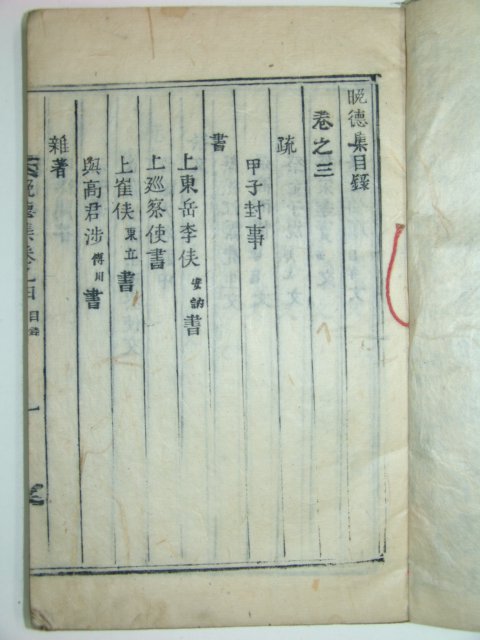 晩德集目録
卷之三
疏
甲子封事
書
上東岳李侯安訥書
上廵察使書
上崔侯東立書
與高君涉傅川書
雜著
晩德集卷之四 目録 一